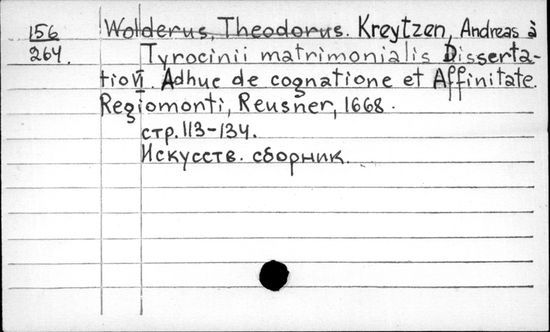 156 Wolderus, Theodorus. Kreytzen, Andreas à
264. Tyrocinii matrimonialis Disserta-
tion I. Adhuc de cognatione et Affinitate.
Regiomonti, Reusner, 1668.
стр. 113-134.
Искусств. сборник.